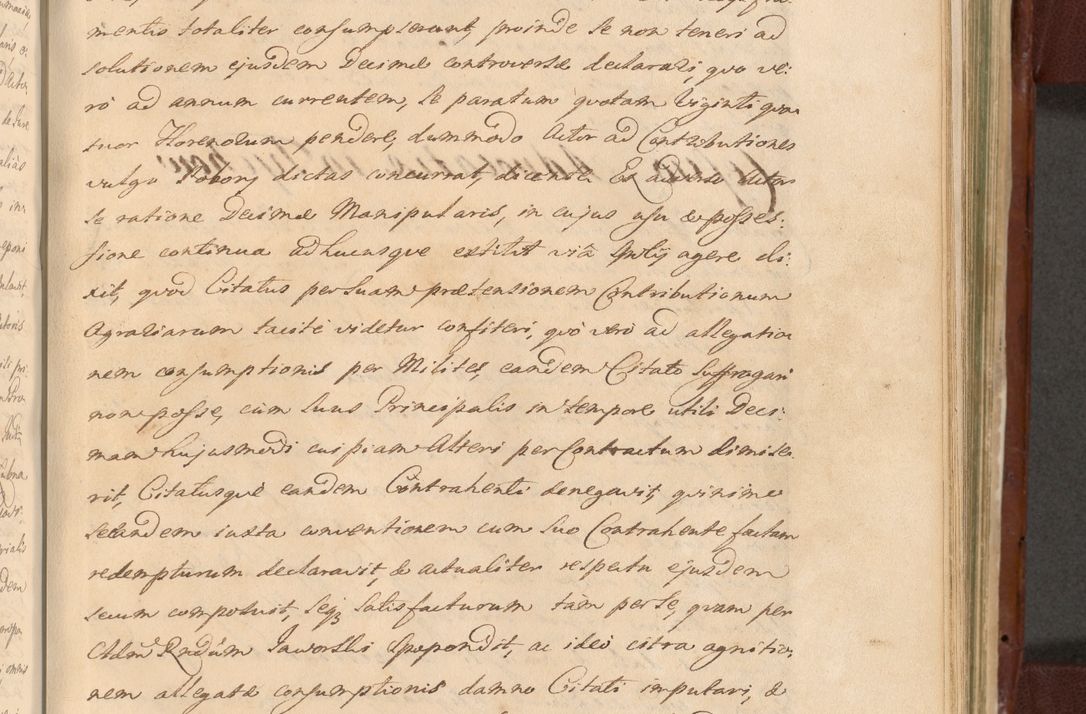 mentis totaliter consumpserunt, proinde se non teneri ad
solutionem ejusdem Decimæ controversæ declarasi, quo ve:
rò ad annum currentem, se paratum quotam Viginti qua
tuor Florenorum pendere, dummodo Actor ad Contributiones
vulgo Pobory dictas concurrat, dicente Ex adverso Actor
se ratione Decimæ Manipularis, in cujus usu & posses:
sione continua adhucusque extitit viâ agere di:
xit, quod Citatus per suam prætensionem Contributionum
Agrariarum tacitè videtur confiteri, quò verò ad allegatio
nem consumptionis per Milites, eandem Citato suffragari
non posse, cum suus Principalis in tempore utili Deci:
mam hujusmodi cuipiam Alteri per Contractum dimise
rit, Citatusque eandem Contrahenti denegavit, quinimo
se eandem iuxta conventionem cum suo Contrahente factam
redempturum declaravit, & actualiter respectu ejusdem
secum composuit, seq3 satisfacturum tàm per se, quam per
Adm Rndum Jaworski spopondit, ac ideò citra agnitio
nem allegatæ consumptionis damno Citati imputari, &